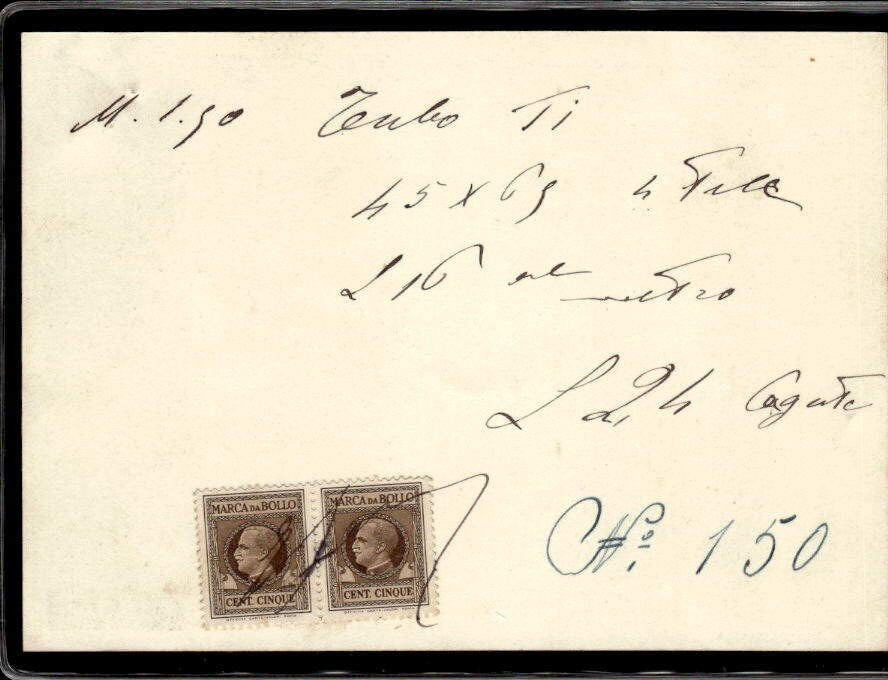 M. 1.50 Tubo Ti
45 x 65 4 tele
L 16 al metro
L 24
MARCA DA BOLLO MARCA DA BOLLO
CENT. CINQUE CENT. CINQUE
No. 150